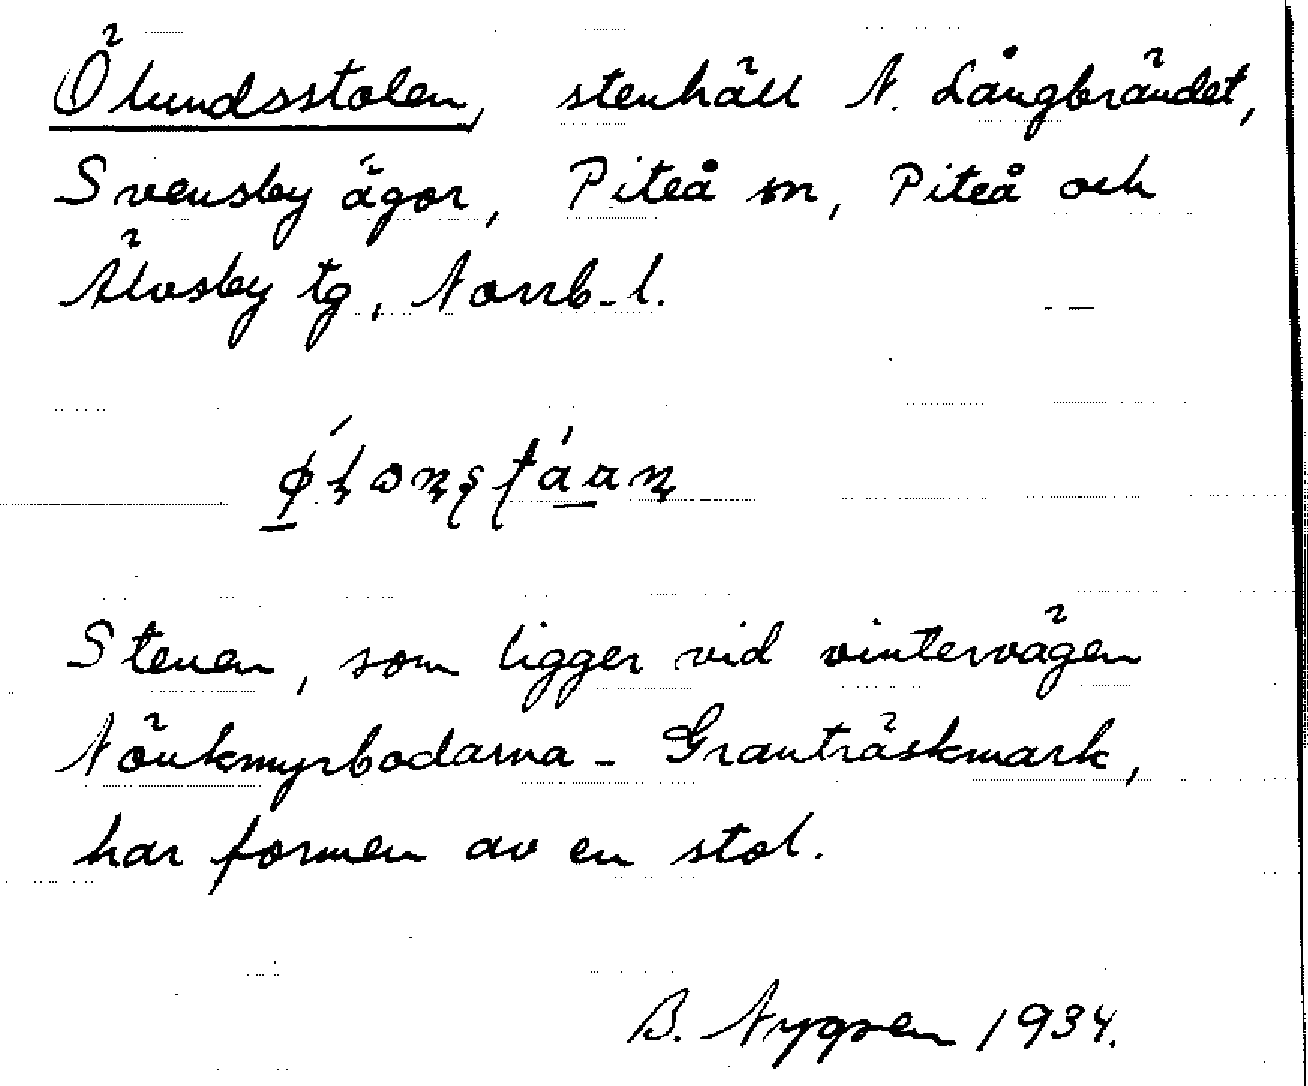 Ölundsstolen, stenhäll N. Långbrändet,
Svensby ägor, Piteå sn, Piteå och
Älvsby tg, Norrb. l.
Stenen, som ligger vid vintervägen
Nönkmyrbodarna - Granträskmark,
har formen av en stol.
B. Nygren 1934.